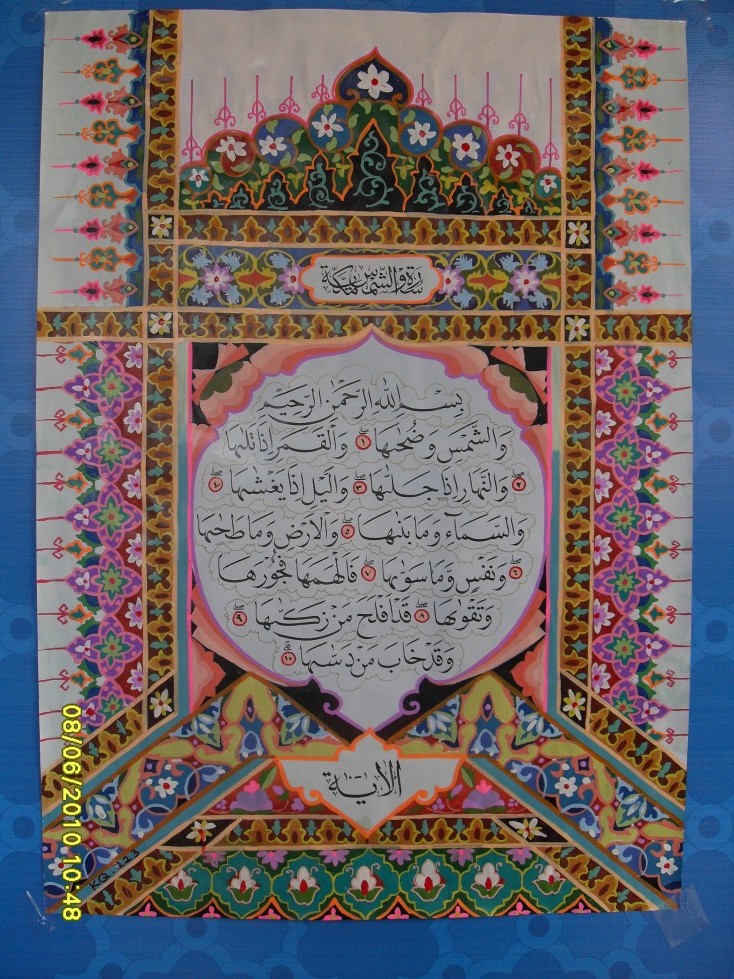 سورة والشمس مكية
بِسْمِ اللهِ الرَّحْمٰنِ الرَّحِيْمِ
وَالشَّمْسِ وَضُحٰىهَا ١ وَالْقَمَرِ اِذَا تَلٰىهَا
٢ وَالنَّهَارِ اِذَا جَلّٰىهَا ٣ وَالَّيْلِ اِذَا يَغْشٰىهَا ٤
وَالسَّمَآءِ وَمَا بَنٰىهَا ٥ وَالْاَرْضِ وَمَا طَحٰىهَا
٦ وَنَفْسٍ وَّمَا سَوّٰىهَا ٧ فَاَلْهَمَهَا فُجُوْرَهَا
وَتَقْوٰىهَا ٨ قَدْ اَفْلَحَ مَنْ زَكّٰىهَا ٩
وَقَدْ خَابَ مَنْ دَسّٰىهَا ١٠
الاٰية
KQ . 223
08/06/2010 10:48